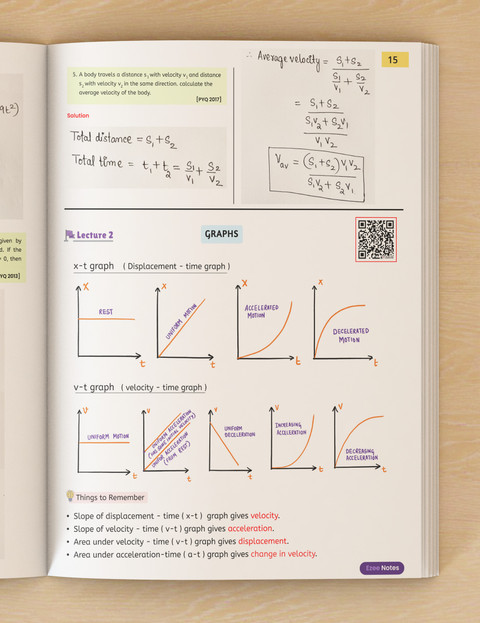 9t²)
given by
d. If the
= 0, then
[PYQ 2013]
15
5. A body travels a distance s₁ with velocity v₁ and distance
s₂ with velocity v₂ in the same direction. calculate the
average velocity of the body.
[PYQ 2017]
Solution
Total distance = S₁+S₂
Total time = t₁+t₂ = S₁/V₁ + S₂/V₂
∴ Average velocity = (S₁+S₂)/(S₁/V₁ + S₂/V₂)
= (S₁+S₂)/((S₁V₂ + S₂V₁)/(V₁V₂))
Vav = (S₁+S₂)V₁V₂/(S₁V₂ + S₂V₁)
Lecture 2
GRAPHS
x-t graph ( Displacement - time graph )
X
REST
t
X
UNIFORM MOTION
t
X
ACCELERATED
MOTION
t
X
DECELERATED
MOTION
t
v-t graph ( velocity - time graph )
V
UNIFORM MOTION
t
V
UNIFORM ACCELERATION
(HAS SOME INITIAL VELOCITY)
UNIFOR ACCELERATION
(FROM REST)
t
V
UNIFORM
DECELERATION
t
V
INCREASING
ACCELERATION
t
V
DECREASING
ACCELERATION
t
Things to Remember
• Slope of displacement - time ( x-t ) graph gives velocity.
• Slope of velocity - time ( v-t ) graph gives acceleration.
• Area under velocity - time ( v-t ) graph gives displacement.
• Area under acceleration-time ( a-t ) graph gives change in velocity.
Ezee Notes